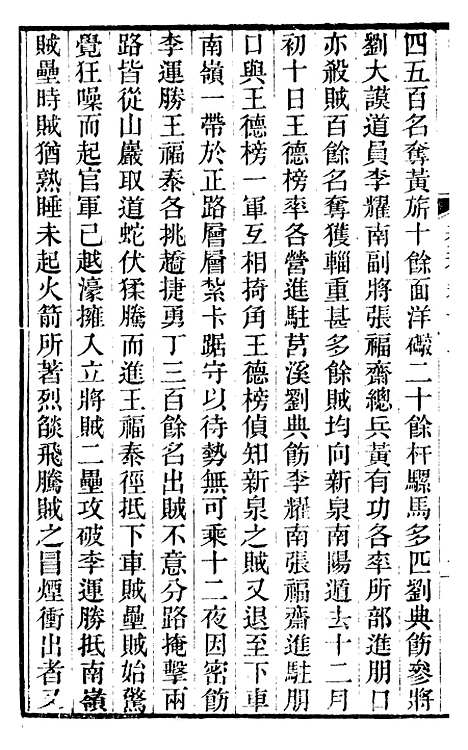 四五百名奪黃旂十餘面洋礮二十餘杆騾馬多匹劉典飭參將
劉大謨道員李耀南副將張福齋總兵黃有功各率所部進朋口
亦殺賊百餘名奪獲輜重甚多餘賊均向新泉南陽遁去十二月
初十日王德榜率各營進駐莒溪劉典飭李耀南張福齋進駐朋
口與王德榜一軍互相掎角王德榜偵知新泉之賊又退至下車
南嶺一帶於正路層層紮卡踞守以待勢無可乘十二夜因密飭
李運勝王福泰各挑趫捷勇丁三百餘名出賊不意分路掩擊兩
路皆從山巖取道蛇伏猱騰而進王福泰徑抵下車賊壘賊始驚
覺狂噪而起官軍已越濠擁入立將賊二壘攻破李運勝抵南嶺
賊壘時賊猶熟睡未起火箭所著烈燄飛騰賊之冒煙衝出者又